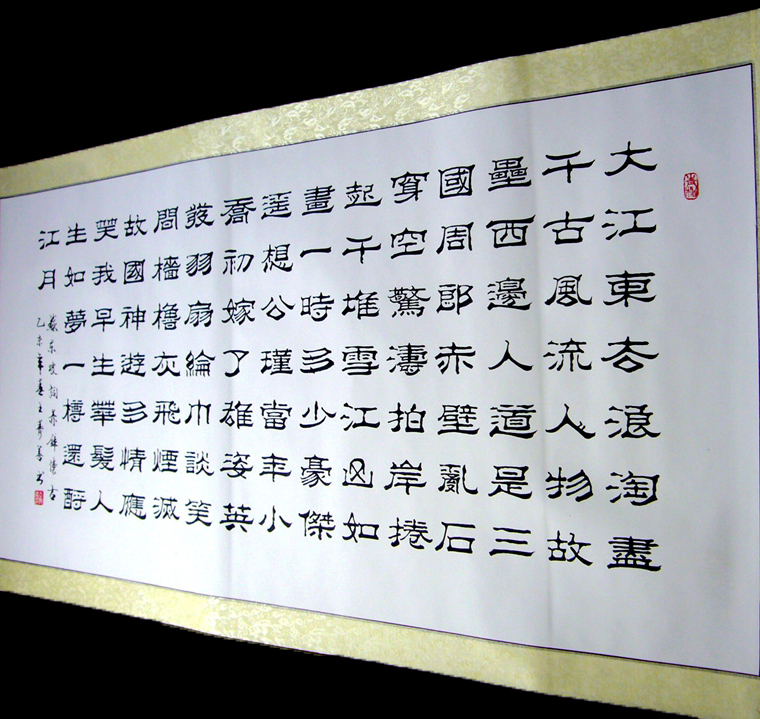 大江東去浪淘盡
千古風流人物故
壘西邊人道是三
國周郎赤壁亂石
穿空驚濤拍岸捲
起千堆雪江山如
畫一時多少豪傑
遙想公瑾當年小
喬初嫁了雄姿英
發羽扇綸巾談笑
間檣櫓灰飛煙滅
故國神遊多情應
笑我早生華髮人
生如夢一樽還酹
江月
蘇東坡詞赤壁懷古
乙未年春王善書